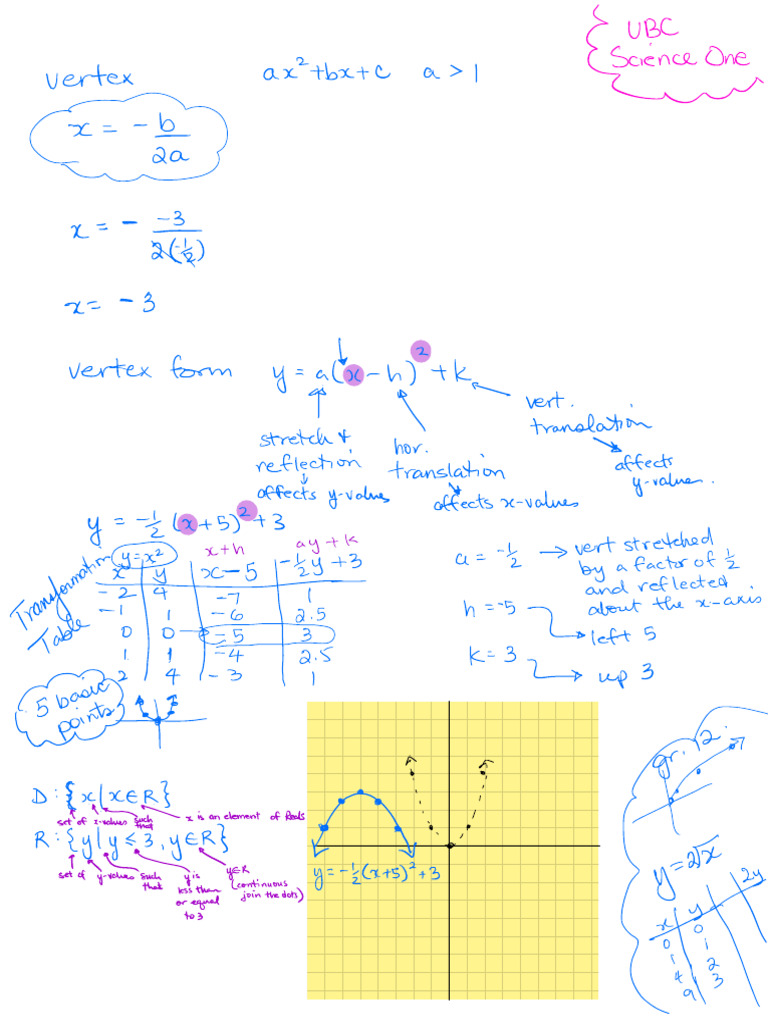 UBC
Science One
vertex
ax²+bx+c a > 1
x = - b/2a
x = - -3/2(-1/2)
x = -3
vertex form y = a(x-h)² + k
stretch & reflection
affects y-values
hor. translation
affects x-values
vert. translation
affects y-values.
y = -1/2 (x+5)² + 3
Transformation Table
y=x²
x+h ay+k
x y x-5 -1/2y+3
-2 4 -7 1
-1 1 -6 2.5
0 0 -5 3
1 1 -4 2.5
2 4 -3 1
a = -1/2 → vert stretched
by a factor of 1/2
and reflected
about the x-axis
h = -5
left 5
k = 3
up 3
5 basic
points
D: {x|x∈R}
set of x-values such that x is an element of Reals
R: {y|y≤3, y∈R}
set of y-values such that
y is
less than
or equal
to 3
y∈R
(continuous
join the dots)
y=-1/2(x+5)²+3
gr. 12.
y=2√x
x y 2y
0 0
1 1
4 2
9 3